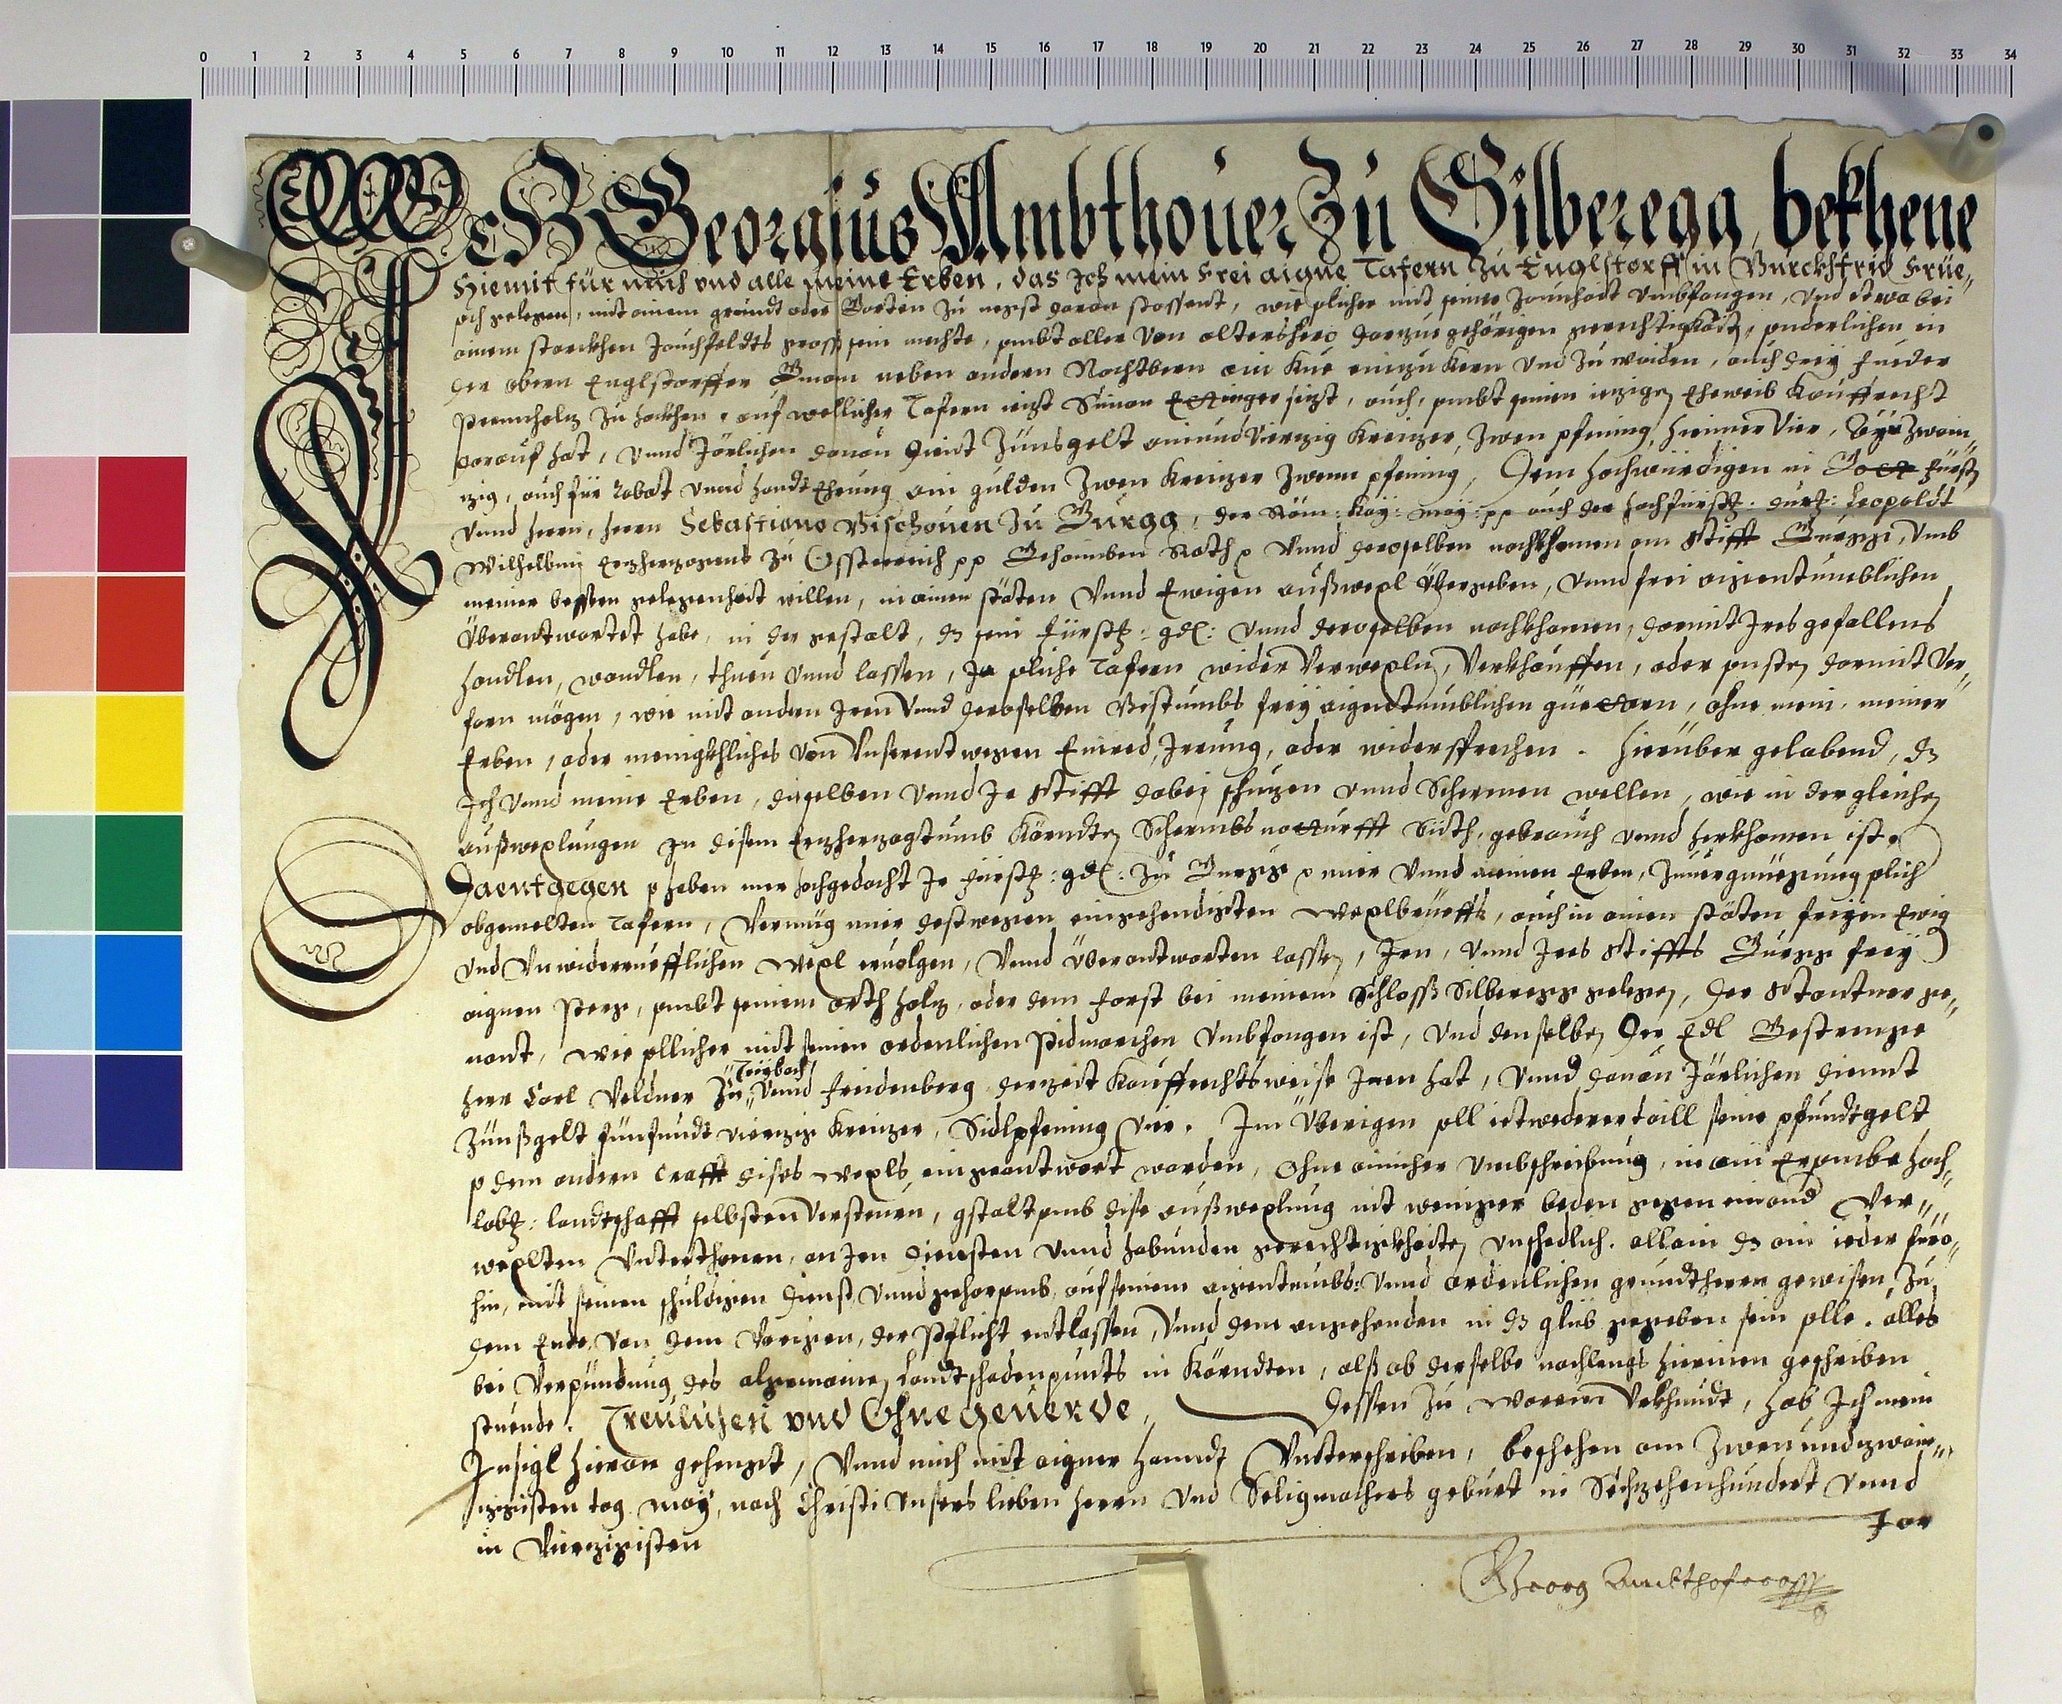 0 1 2 3 4 5 6 7 8 9 10 11 12 13 14 15 16 17 18 19 20 21 22 23 24 25 26 27 28 29 30 31 32 33 34
Ich Georgius Ambthouer Zu Silberegg, bekhene
Hiemit für mich vnd alle meine Erben, das Ich mein frei aigne Tafern zu Englstorff in Burckhfrid
gelegen, mit ainem grundt oder Garten zu negst daran stossent, wie solicher mit seiner Zaunhait Vmbfangen, Vnd etwa bei
ainem starckhen Jauchfeldts gross sein mechte, sambt aller von altershero darzue gehörigen gerechtigkait, sonderlichen in
der obern Englstorffer Gmain neben andern Nachtbern ain Kue einzukern vnd zu waiden, auch drey Fueder
Prennholz zu hackhen, auf wellicher Tafern iezt Simon sizt, auch sambt seinen iezigen Eheweib Kauffrecht
darauf hat, Vnnd Järlichen dauon Dient Zünsgelt ainundvierzig Kreizer, Zwen pfening, hienner Vier, Ayr Zwain„
zig, auch für Robat vnnd handt Ehrung ain gulden Zwen Kreizer Zwenn pfening, Dem hochwürdigen in Gott Fürsten
vnnd herrn, herrn Sebastiano Bischouen zu Gurgg, der Röm: Kay: May: pp auch der hochfürstl: durchl: Leopoldt
Wilhelbm Erzherzogens zu Össterreich pp Gehaimben Rath p Vnnd deroselben nachkhomen am Stifft Gurgg, Vmb
meiner bessten gelegenhait willen, in ainen stäten Vnnd Ewigen außwexl Übergeben, Vnnd frei aigentumblichen
Überantwortet habe, in der gestalt, dz sein Fürstl: gdl: Vnnd deroselben nachkhomen, darmit Ires gefallens
handlen, wandlen, thuen Vnnd lassen, Ja soliche Tafern wider Verwexln, Verkhauffen, oder sonsten darmit Ver„
farn mögen, wie mit andern Iren Vnnd deroselben Bistumbs frey aigentumblichen güettern, ohne mein, meiner
Erben, oder menigkhliches von Vnsernt wegen Einred, Irrung, oder widersprechen. Hierüber gelobend, dz
Ich Vnnd meine Erben, dieselben Vnnd Ir Stifft dabei schuzen vnnd Schermen wellen, wie in dergleichen
außwexlungen In disem Erzherzogtumb Kärndten Schermbs notturfft Sitth, gebrauch vnnd herkhomen ist.
Daentgegen p haben mer hochgedacht Ir Fürstl: gdl: zu Gurgg p mier Vnnd meinen Erben, solich
obgemelten Tafern, Vermüg mier destwegen eingehendigten Wexlbrieffs, auch in ainen stäten freyen Ewig
vnd Vnwiderruefflichen Wexl eruolgen, Vnnd Überantworten lassen, Iren, Vnnd Ires Stiffts Gurgg frey
aignen sambt seinem orth holz, oder dem Forst bei meinem Schloss Silberegg gelegen, der ge„
nant, wie sollicher mit seinen ordenlichen Pidmarchen Vmbfangen ist, Vnd denselben Der Edl Gestrenge
Herr Carl Veldner Zu„ „Treybach„ Vnnd Freidenberg derzeit Kauffrechtsweise Inen hat, Vnnd dauon Järlichen dient
Zünßgelt fünfundt vierzig Kreizer, Sidlpfening Vier. Im Überigen soll ietwederertaill seine pfundtgelt
p dem andern Crafft dises Wexls eingeantwort werden, ohne ainicher Vmbschreibung, in ain Ersambe hoch„
lobl: Landtschafft selbsten Versteurn, gstaltsamb dise außwexlung nit weniger beden gegen einand Ver„
wexlten Vnterthonen, an Iren Diensten Vnnd habunden gerechtigkhaiten vnschedlich. allain dz ain ieder füro„
hin, mit seinen schuldigen Dienst Vnnd gehorsamb, auf seinem aigentumbs: Vnnd ordenlichen grundtherrn gewisen, Zu
dem Ende, Von dem Vorigen, der Pflicht entlassen, Vnnd dem angehenden in dz glüb gegeben sein solle. alles
bei Verpündung des algemainen Landtschadenpunts in Kärndten, alß ob derselbe nachlengs hierinen geschriben
stuende. Treulichen vnd Ohne geuerde, Dessen zu warem Vrkhundt, hab Ich mein
Insigl hieran gehengt, Vnnd mich mit aigner Hanndt Vnterschriben, beschehen am Zwenundzwain„
zigisten tag May, nach Christi Vnsers lieben Herrn Vnd Seligmachers geburt in Sechzehenhundert Vnnd
in Vierzigisten Jar
Georg Ambthofer